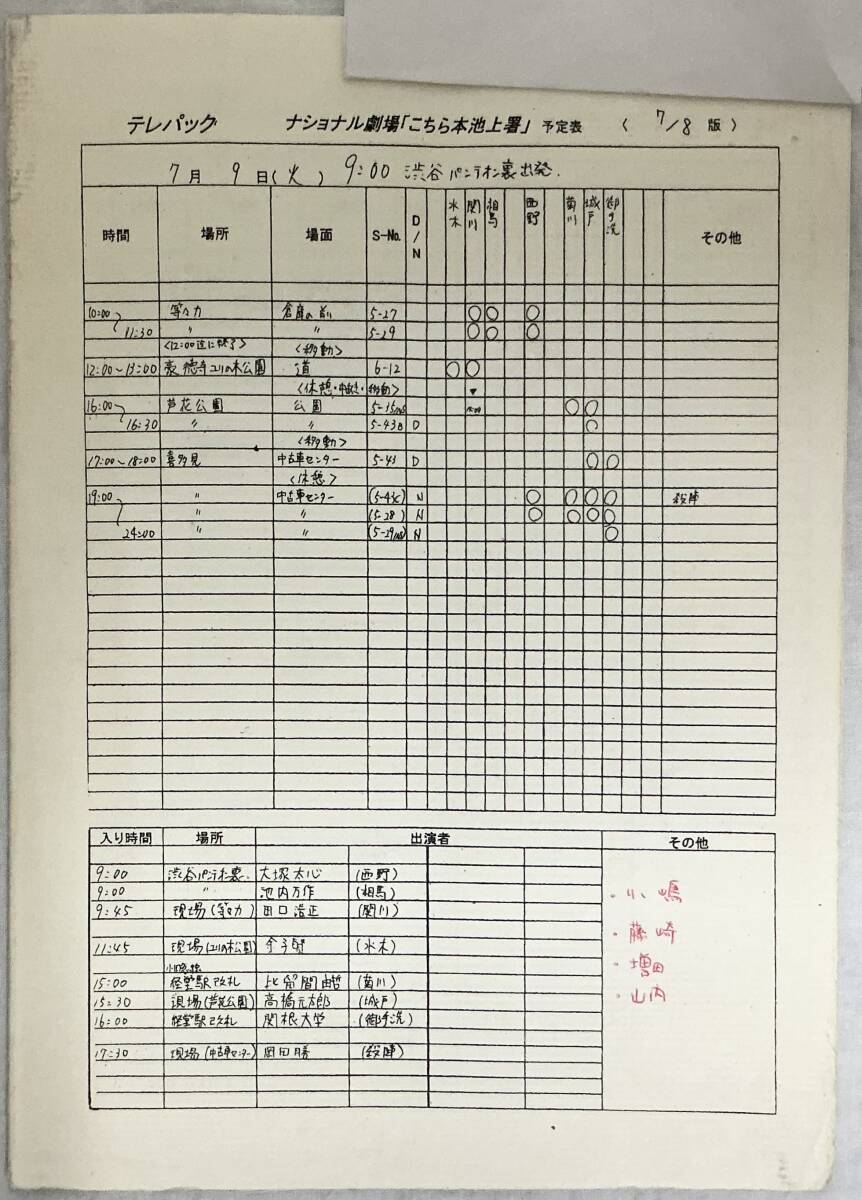 テレパック ナショナル劇場「こちら本池上署」 予定表 〈 7/8 版 〉
7月 9日(火) 9:00 渋谷パンテオン裏出発.
時間 場所 場面 S-No. D/N 水木 関川 相馬 西野 菊川 城戸 御手洗 その他
10:00 等々力 倉庫の前 5-27 ○ ○ ○
11:30 〃 〃 5-29 ○ ○ ○
<12:00迄に終了> <移動>
12:00~13:00 豪徳寺ユリの木公園 道 6-12 ○ ○
<休憩・中抜き・移動> ▼
16:00 芦花公園 公園 ○ ○
16:30 〃 〃 5-43B D ○
<移動>
17:00~18:00 喜多見 中古車センター 5-43 D ○ ○
<休憩>
19:00 〃 中古車センター N ○ ○ ○ ○ 殺陣
〃 〃 (5-28) N ○ ○ ○ ○
24:00 〃 〃 N ○
入り時間 場所 出演者 その他
9:00 渋谷パンテオン裏. 大塚太心 (西野)
9:00 〃 池内万作 (相馬)
9:45 現場(等々力) 田口浩正 (関川)
11:45 現場(ユリの木公園) 金子賢 (水木)
15:00 経堂駅改札 比留間由哲 (菊川)
15:30 現場(芦花公園) 高橋元太郎 (城戸)
16:00 経堂駅改札 関根大学 (御手洗)
17:30 現場(中古車センター) 岡田勝 (殺陣)
・小嶋
・藤崎
・増田
・山内